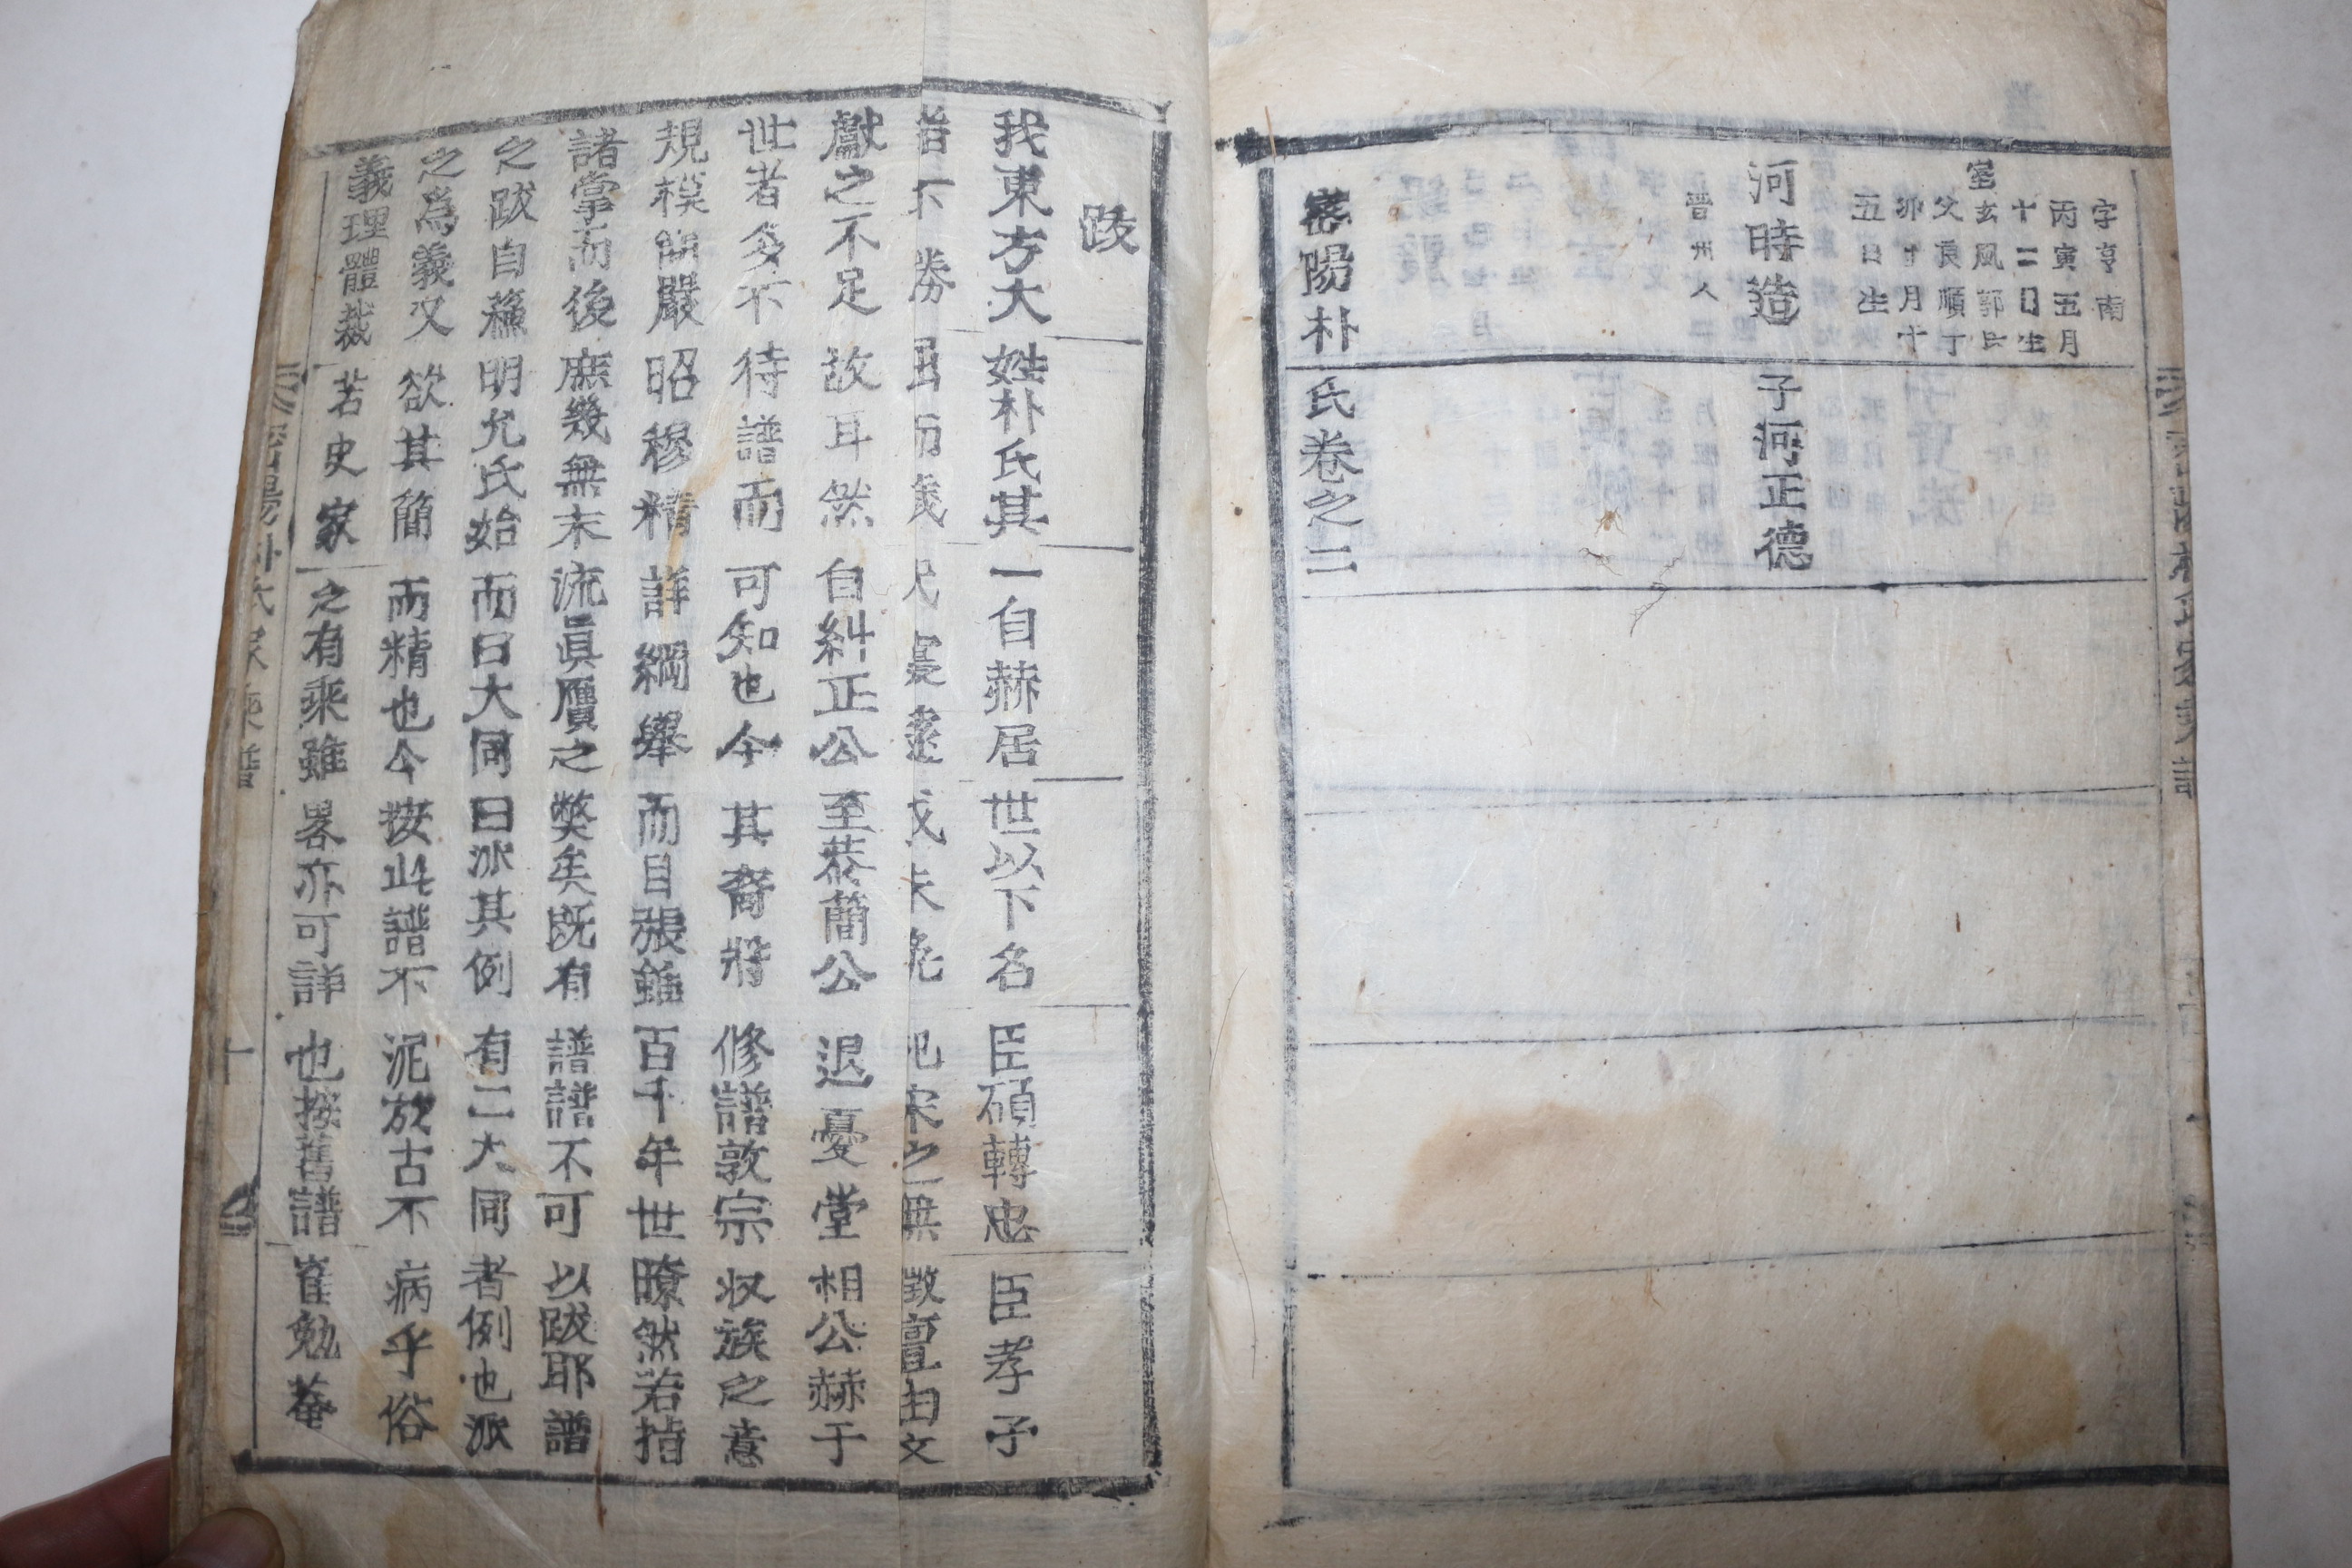 字亨南
丙寅五月
十二日生
室玄風郭氏
父良順丁
卯十月十
五日生
河時造 子河正德
晋州人
密陽朴氏卷之二
跋
我東方大姓朴氏其一自赫居世以下名臣碩輔忠臣孝子
不勝 而 未免 杞宋之無徵亶由文
獻之不足故耳然自糾正公至恭簡公退憂堂相公赫于
世者多不待譜而可知也今其裔將修譜敦宗収族之意
規模簡嚴昭穆精詳綱舉而目張雖百千年世瞭然若指
諸掌而後庶幾無末流眞贋之獘矣既有譜譜不可以跋耶譜
之跋自蘓明允氏始而曰大同曰派其例有二大同者例也派
之爲義又欲其簡而精也今按此譜不泥於古不病乎俗
義理體裁若史家之有乘雖畧亦可詳也按舊譜崔勉菴
密陽朴氏家乘譜